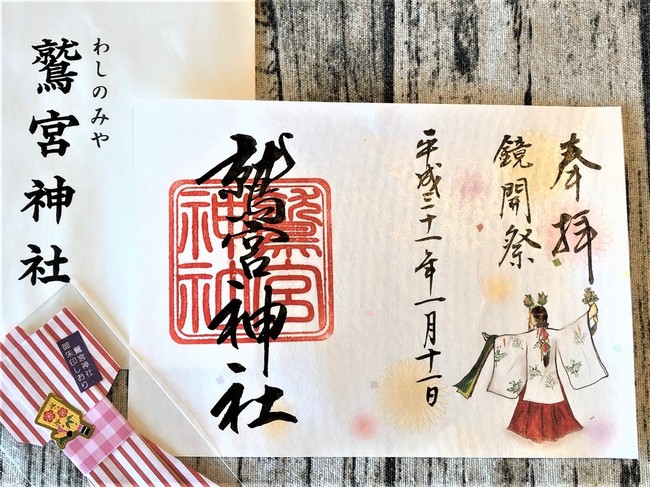 わしのみや
鷲宮神社
奉拝
鏡開祭
平成三十一年一月十一日
鷲宮神社
鷲宮神社
鷲宮神社
御朱印しおり